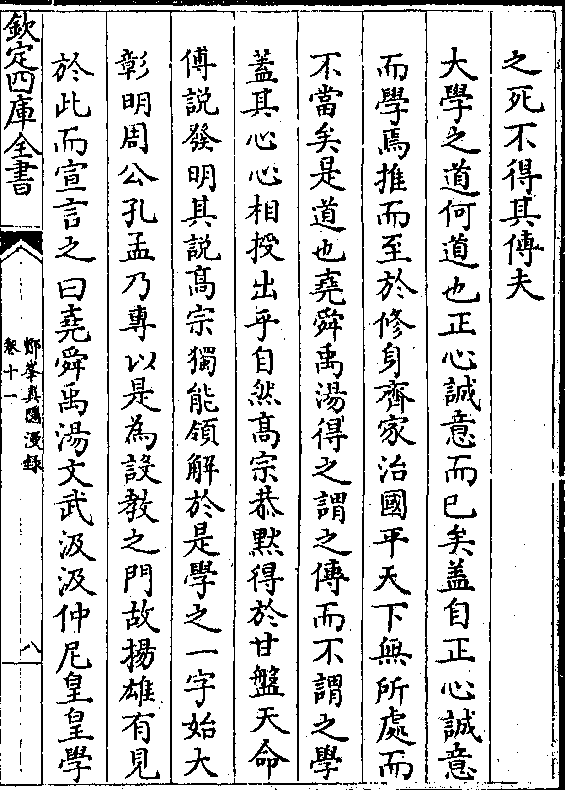 之死不得其傳夫
大學之道何道也正心誠意而已矣蓋自正心誠意
而學焉推而至於修身齊家治國平天下無所處而
不當矣是道也堯舜禹湯得之謂之傳而不謂之學
蓋其心心相授出乎自然髙宗恭黙得於甘盤天命
傅説發明其説髙宗獨能領解於是學之一字始大
彰明周公孔孟乃專以是為設教之門故揚雄有見
於此而宣言之曰堯舜禹湯文武汲汲仲尼皇皇學
欽定四庫全書
鄮峯真隱漫録
卷十一
八